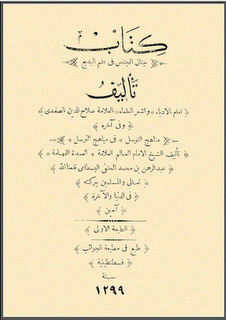 كتاب
جنان الجناس فى علم البديع
تأليف
امام الادباء واشعر العلماء العلامة صلاح الدين الصفدى
وفى آخره
مناهج التوسل فى مباهج الترسل
تأليف الشيخ الامام العالم العلامة العمدة الفهامة
عبد الرحمن بن محمد الحنفى البسطامى نفعنا الله
تعالى والمسلمين ببركته
فى الدنيا والآخرة
آمين
الطبعة الاولى
طبع فى مطبعة الجوائب
قسطنطينية
سنة
١٢٩٩